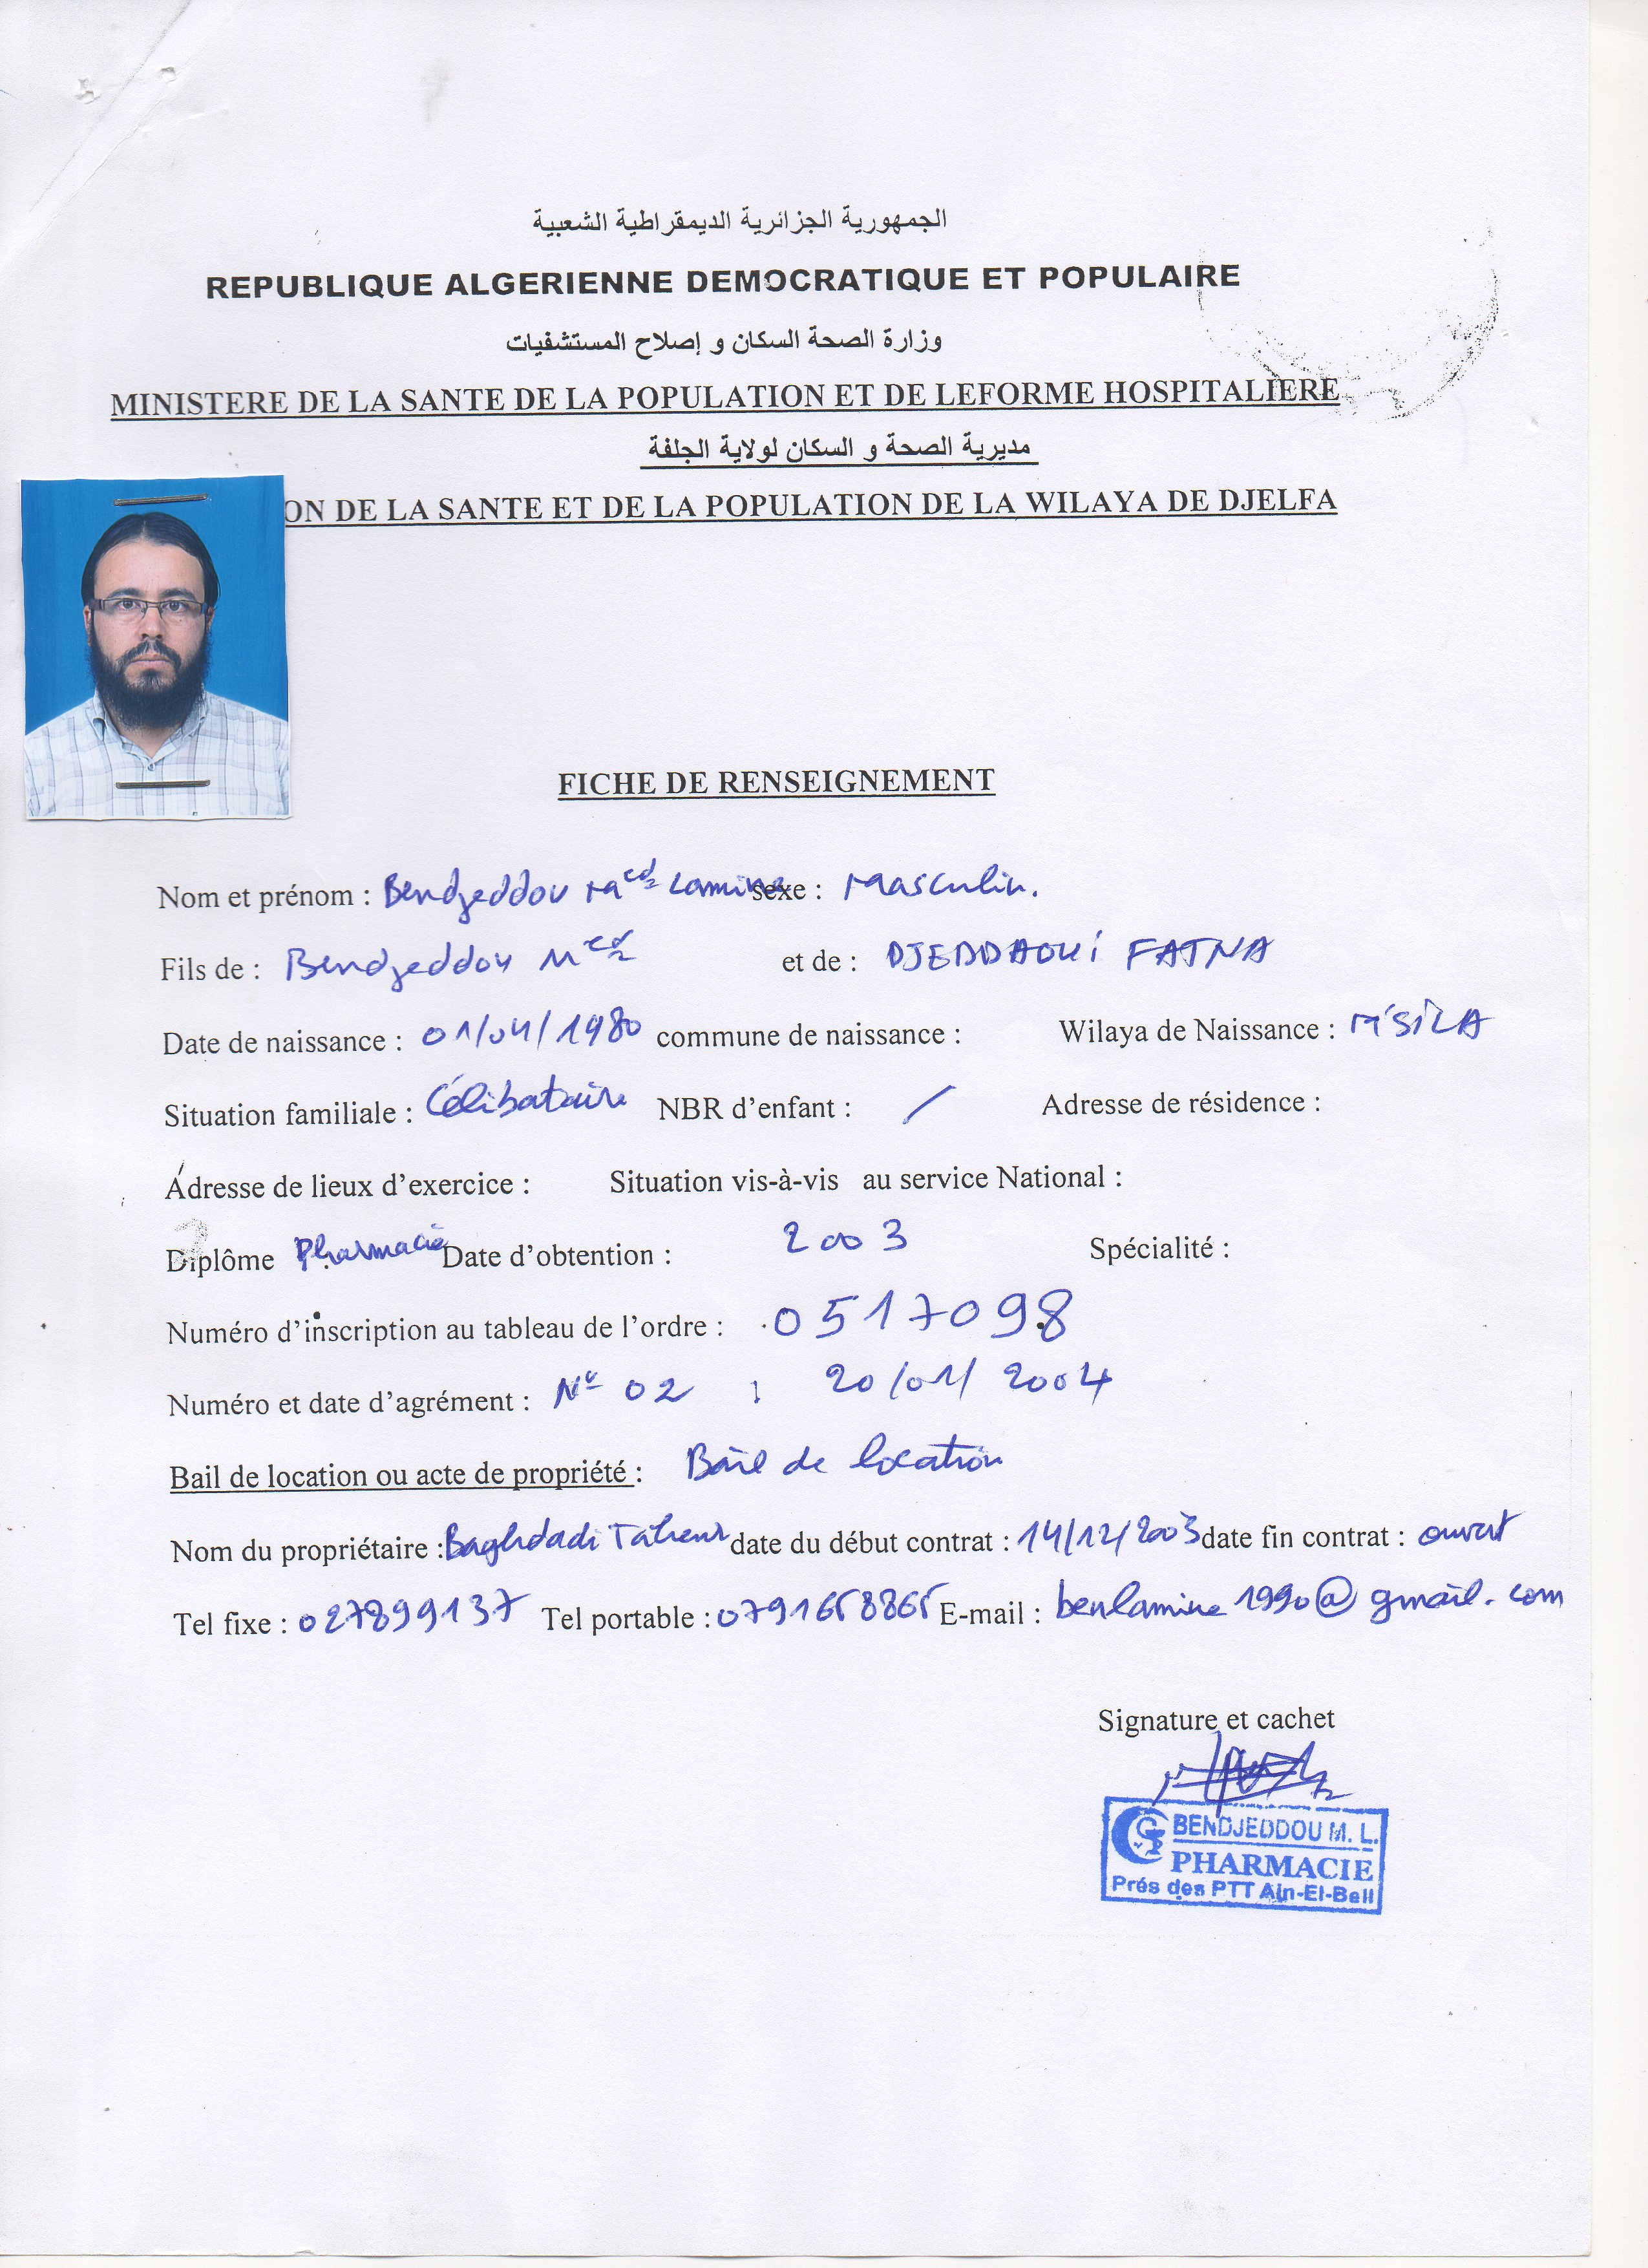 الجمهورية الجزائرية الديمقراطية الشعبية
REPUBLIQUE ALGERIENNE DEMOCRATIQUE ET POPULAIRE
وزارة الصحة السكان و إصلاح المستشفيات
MINISTERE DE LA SANTE DE LA POPULATION ET DE LEFORME HOSPITALIERE
مديرية الصحة و السكان لولاية الجلفة
ON DE LA SANTE ET DE LA POPULATION DE LA WILAYA DE DJELFA
FICHE DE RENSEIGNEMENT
Nom et prénom : Bendjeddou Med Lamine sexe : Masculin.
Fils de : Bendjeddou Med et de : DJEDDAOUI FATNA
Date de naissance : 01/04/1980 commune de naissance : Wilaya de Naissance : M'SILA
Situation familiale : Célibataire NBR d'enfant : / Adresse de résidence :
Adresse de lieux d'exercice : Situation vis-à-vis au service National :
Diplôme Pharmacie Date d'obtention : 2003 Spécialité :
Numéro d'inscription au tableau de l'ordre : 0517098
Numéro et date d'agrément : N° 02 : 20/01/2004
Bail de location ou acte de propriété : Bail de location
Nom du propriétaire : Baghdadi date du début contrat : 14/12/2003 date fin contrat : ouvert
Tel fixe : 027899137 Tel portable : 0791658865 E-mail : benlamine1990@gmail.com
Signature et cachet
BENDJEDDOU M. L.
PHARMACIE
Prés des PTT Ain-El-Bell